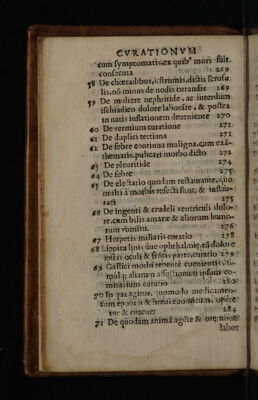 CVRATIONVM
cum symptomatis, ex quib⁹ mori fuit
consecuta 269
58 De chœradibus, i. strumis, dictis scrofu
lis, nō minus de nodis curandis 269
59 De muliere nephritide, ac interdum
ischiadico dolore laborāte, & postea
in natis inflationem deueniente 270
60 De vermium curatione 271
61 De duplici tertiana 271
62 De febre continua maligna, cum exā-
thematis, pulicari morbo dicto 272
63 De pleuritide 274
64 De febre 275
65 De electario quodam restaurante, quo
multi à morbis refecti sunt, & instau-
rati 275
66 De ingenti & crudeli ventriculi dolo-
re, cum bilis amaræ & aliorum humo-
rum vomitu. 276
67 Herpetis miliaris curatio 278
68 Lippitudinis siue ophthalmiæ, cū dolore
oculi & frōtis parte, curatio 279
69 Gallici morbi repente euenientis, si-
mulq; aliarum affectionum ipsum co-
mitatium curatio 280
70 In qua agitur, quomodo medicamen-
tum & breui
tur & euacuet 284
71 De quodam animā agēte & oratione
labor